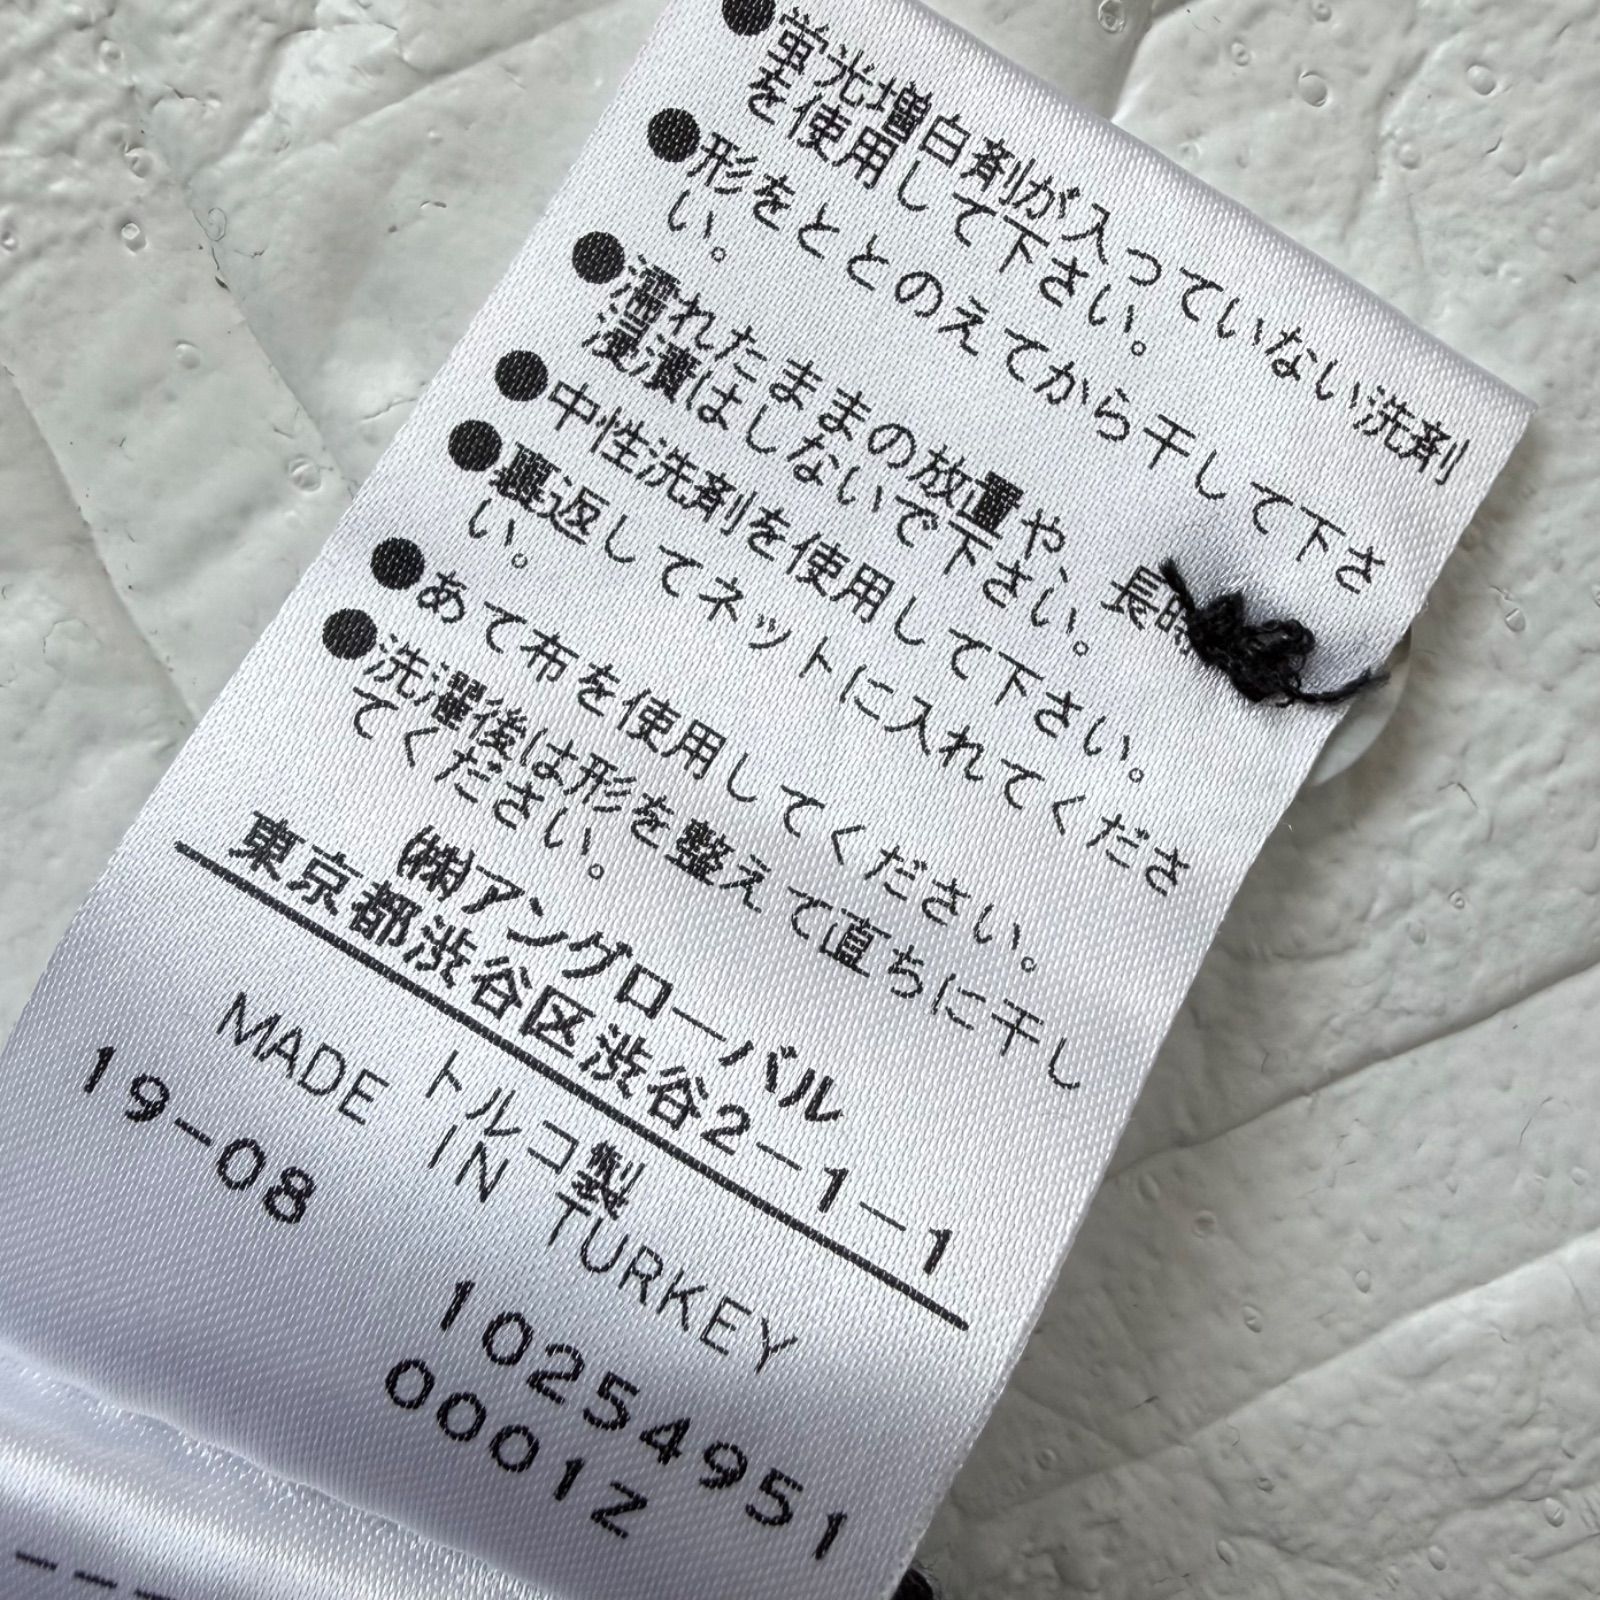 ●蛍光増白剤が入っていない洗剤
を使用して下さい。
●形をととのえてから干して下さ
い。
●濡れたままの放置や、長時
浸漬はしないで下さい。
●中性洗剤を使用して下さい。
●裏返してネットに入れてくださ
い。
●あて布を使用してください。
●洗濯後は形を整えて直ちに干し
てください。
㈱アングローバル
東京都渋谷区渋谷2-1-1
トルコ製
MADE IN TURKEY
19-08
10254951
0001Z